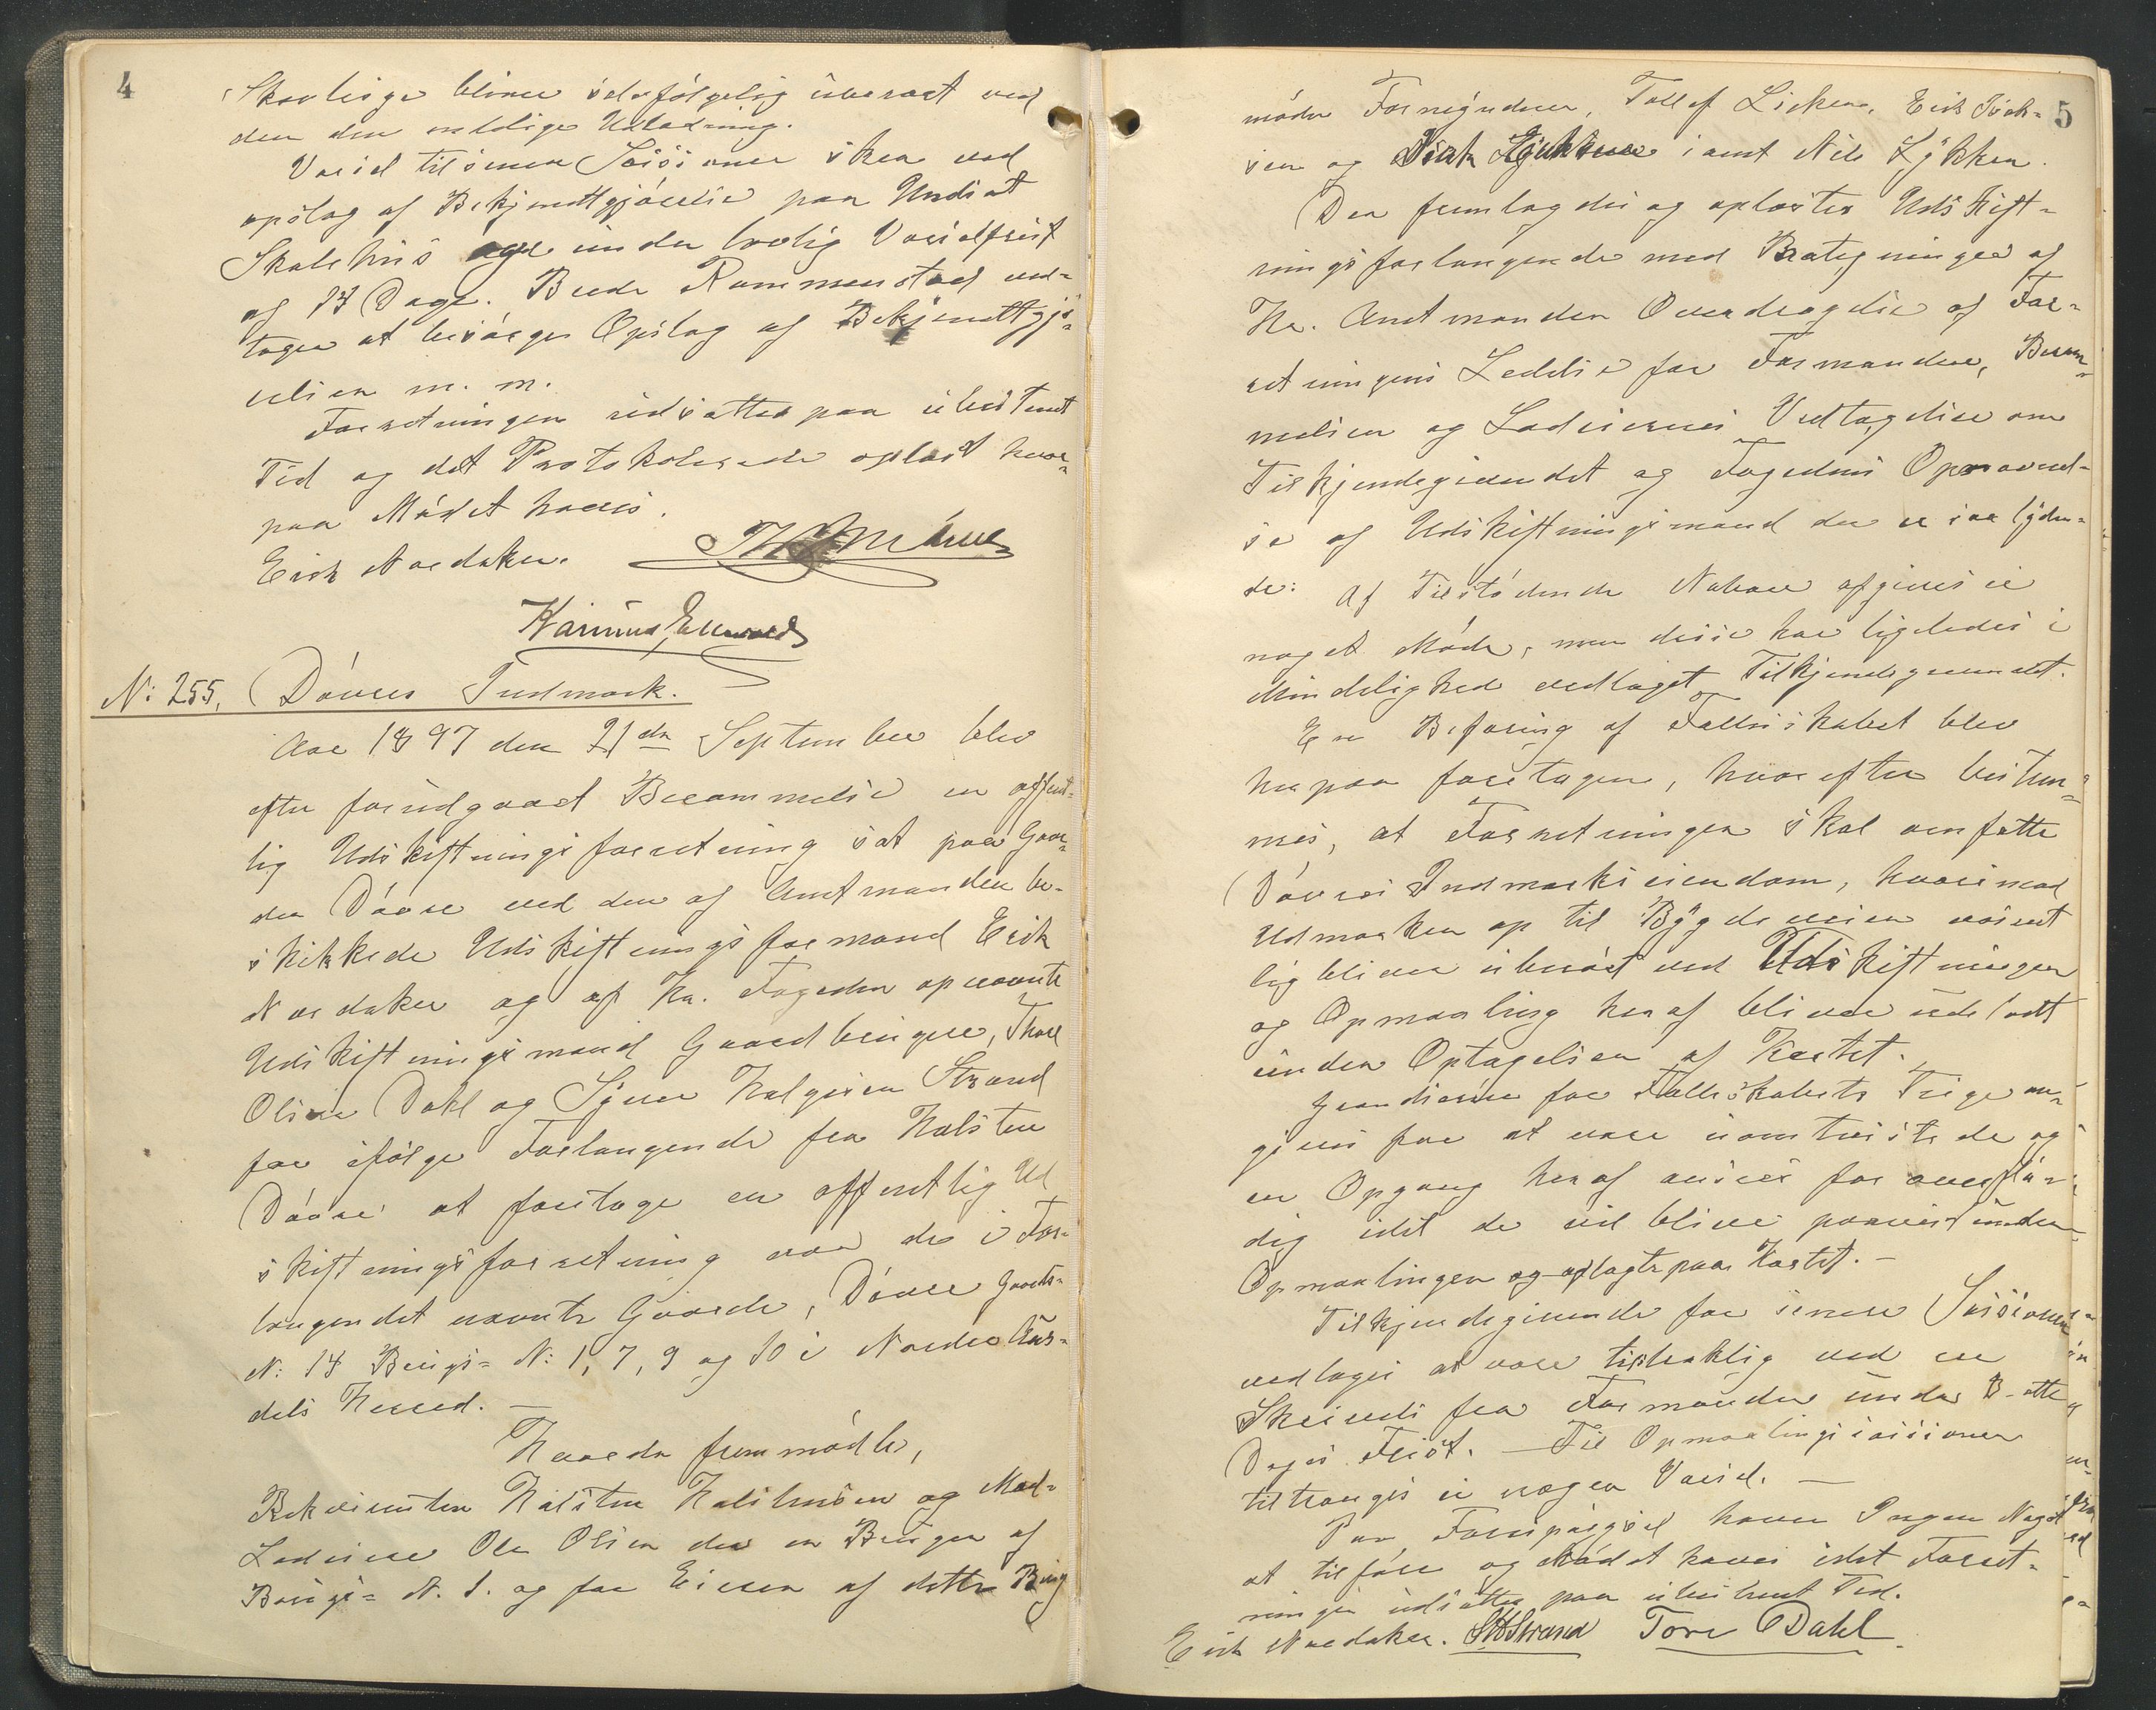 4
Skovteige bliver selvfølgelig ubevaret ved
den den endelige Udlodning.
Varsel til senere Sessioner sker ved
opslag af Bekjendtgjørelse paa Undset
Skolehus under lovlig Varselfrist
af 14 Dage. Rommenstad ved=
toges at besørge Opslag af Bekjendtgjø=
relsen m. m.
Forretningen udsættes paa ubestemt
Tid og det Protokolerede oplæst hvor=
paa Mødet hæves.
Erik Nordaker.
N: 255. Døvres Indmark.
Aar 1897 den 21de September blev
efter forudgaaed Berammelse en offent=
lig Udskiftningsforretning sat paa Gaar=
den Døvre ved den af Amtmanden be=
skikkede Udskiftningsformand Erik
Nordaker og af Hr. Fogden opnævnte
Udskiftningsmænd Gaardbrugere, Thore
Olsen Dahl og Syver Halgrisen Strand
for ifølge Forlangende fra Halsten
Døvre at foretage en offentlig Ud
skiftningsforretning over de i For=
langendet nævnte Gaarde, Døvre Gaards=
N: 14 Brugs= N: 1, 7, 9 og 10 i Nordre Aur=
dals Herred. —
Herved fremmødte,
Rekvirenten Halsten Halstensen og Med=
Lodseier Ole Olsen der er Bruger af
Brugs= N. 1. og for Eieren af dette Brug
5
møder Formynderen, Tollef Lieken, Erik Isak=
sen og Isak samt Nils Lykken.
Der fremlagdes og oplæstes Udskift=
ningsforlangende med Paategninger af
Hr. Amtmanden Overdragelse af For=
retningens Ledelse for Formanden, Beram=
melsen og Lodseiernes Vedtagelse om
Tilkjendegivendet og Fogdens Opnævnel=
se af Udskiftningsmænd der er saa lyden=
de: Af Tilstødende Naboer afgives ei
noget Møde, men disse har ligeledes i
Mindelighed vedtaget Tilkjendegivendet.
En Befaring af Fællesskabet blev
herpaa foretagen, hvorefter bestem=
mes, at Forretningen skal omfatte
Døvres Indmarkseiendom, hvorimod
Udmarken op til Bygdeveien væsent
lig bliver uberørt ved Udskiftningen
og Opmaaling heraf bliver udeladt
under Optagelsen af Kartet.
Grændserne for Fællesskabets Teige an=
gives for at være uomtvistede og
en Opgang heraf ansees for overflø=
dig idet de vil blive paavist under
Opmaalingen og oplagte paa Kartet. —
Tilkjendegivende for senere Sessioner
vedtages at være tilstrækkelig ved en
Skrivelse fra Formanden under 8-otte
Dages Frist. — Til Opmaalingssessionen
tiltrænges ei nogen Varsel. —
Paa Forespørgsel havde Ingen Noget
at tilføre og Mødet hæves idet Forret=
ningen udsættes paa ubestemt Tid.
Erik Nordaker. SHStrand Tore Dahl